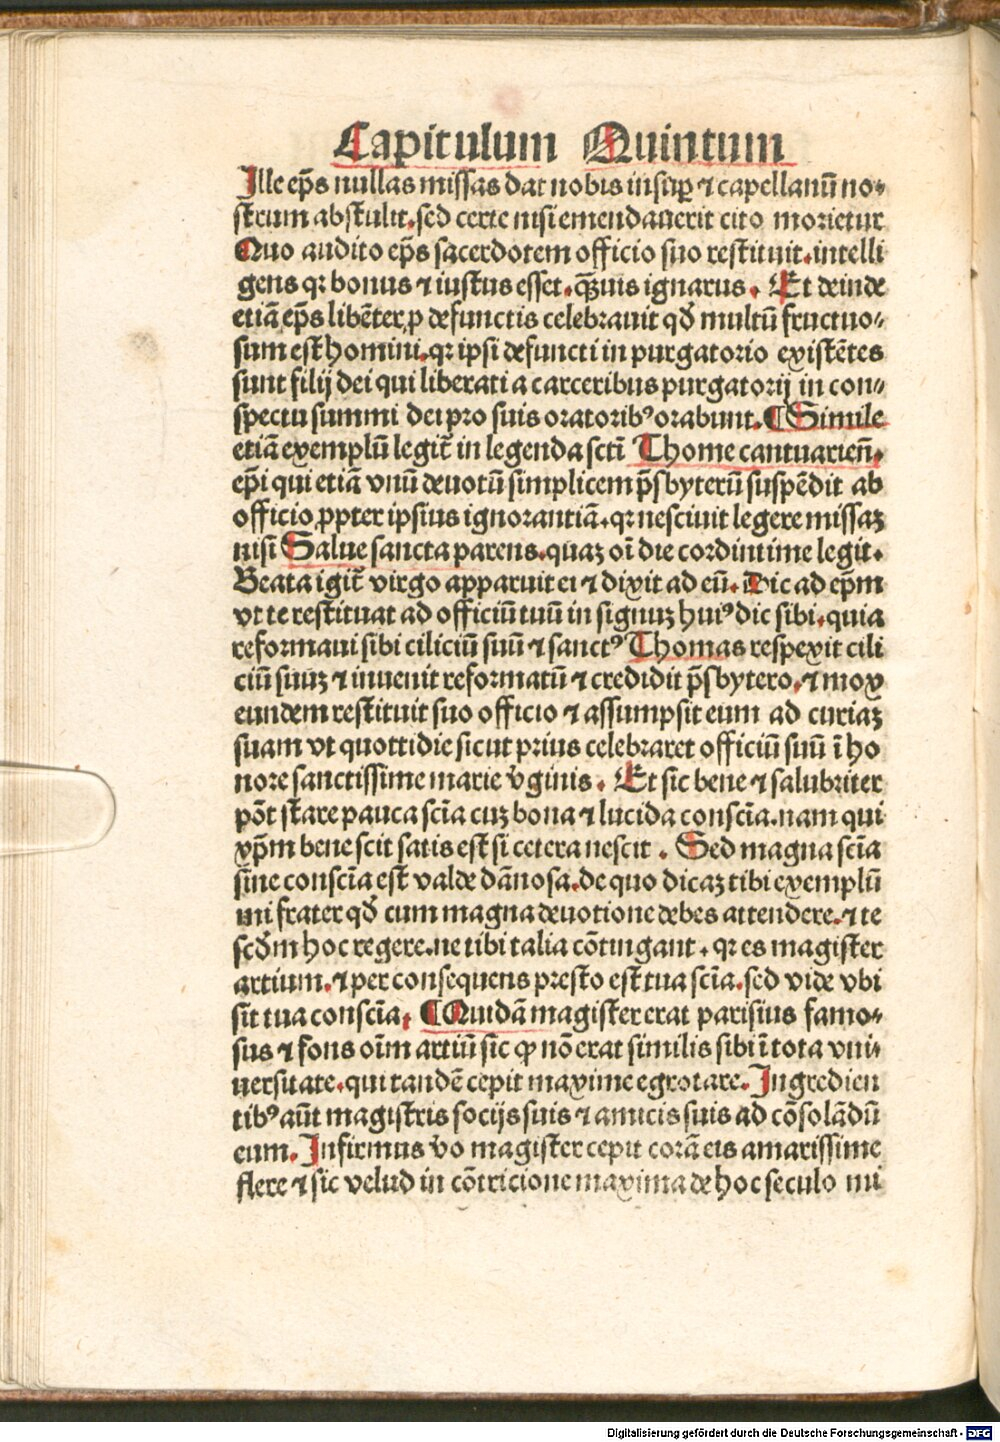 Capitulum Quintum
Ille ep̄s nullas missas dat nobis insuꝑ ⁊ capellanū no⸗
strum abstulit.sed certe nisi emendauerit cito morietur
Quo audito ep̄s sacerdotem officio suo restituit.intelli
gens qꝛ bonus ⁊ iustus esset.q̄ꝫuis ignarus. Et deinde
etiā ep̄s libēter ꝓ defunctis celebrauit qđ multū fructuo⸗
sum est homini.qꝛ ipsi defuncti in purgatorio existētes
sunt filij dei qui liberati a carceribus purgatorij in con⸗
spectu summi dei pro suis oratoribꝰ orabunt.¶Simile
etiā exemplū legit̄ in legenda scti̅ Thome cantuarien̄.
ep̄i qui etiā vnū deuotū simplicem p̄sbyterū suspēdit ab
officio ꝓpter ipsius ignorantiā.qꝛ nesciuit legere missaꝫ
nisi Salue sancta parens.quaꝫ oi̅ die cordintime legit.
Beata igit̄ virgo apparuit ei ⁊ dixit ad eū. Dic ad ep̄m
vt te restituat ad officiū tuū in signuꝫ huiꝰ dic sibi.quia
reformaui sibi ciliciū suū ⁊ sanctꝰ Thomas respexit cili
ciū suuꝫ ⁊ inuenit reformatū ⁊ credidit p̄sbytero.⁊ mox
eundem restituit suo officio ⁊ assumpsit eum ad curiaꝫ
suam vt quottidie sicut prius celebraret officiū suū ī ho
nore sanctissime marie v̄ginis. Et sic bene ⁊ salubriter
pōt stare pauca scīa cuꝫ bona ⁊ lucida conscīa.nam qui
xp̄m bene scit satis est si cetera nescit. Sed magna scīa
sine conscīa est valde dānosa.de quo dicaꝫ tibi exemplū
mi frater qđ cum magna deuotione debes attendere.⁊ te
scđm hoc regere.ne tibi talia cōtingant.qꝛ es magister
artium.⁊ per consequens presto est tua scīa.sed vide vbi
sit tua conscīa. ¶Quidā magister erat parisius famo⸗
sus ⁊ fons oīm artiū sic ꝙ nō erat similis sibi ī tota vni⸗
uersitate.qui tandē cepit maxime egrotare. Ingredien
tibꝰ aūt magistris socijs suis ⁊ amicis suis ad cōsolādū
eum. Infirmus v̄o magister cepit corā eis amarissime
flere ⁊ sic velud in cōtricione maxima de hoc seculo mi
Digitalisierung gefördert durch die Deutsche Forschungsgemeinschaft - DFG